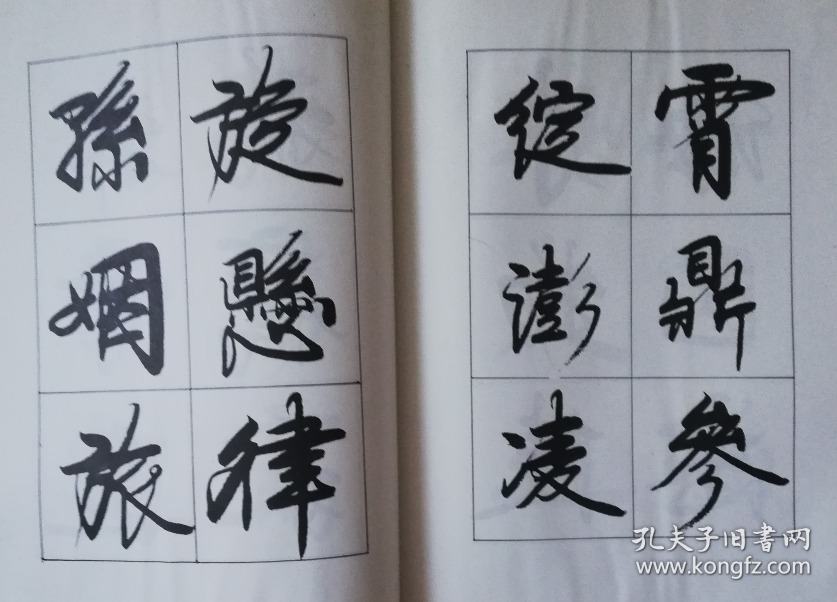 霄鼎參
綻澎凌
旋懸律
孫姻旅
孔夫子旧书网
www.kongfz.com